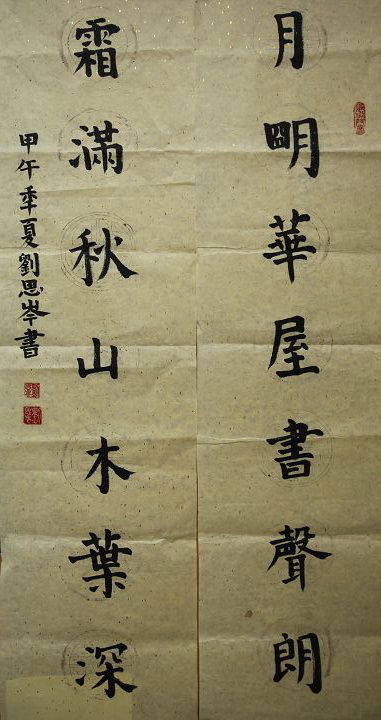 月明華屋書聲朗
霜滿秋山木葉深
甲午季夏劉思岑書